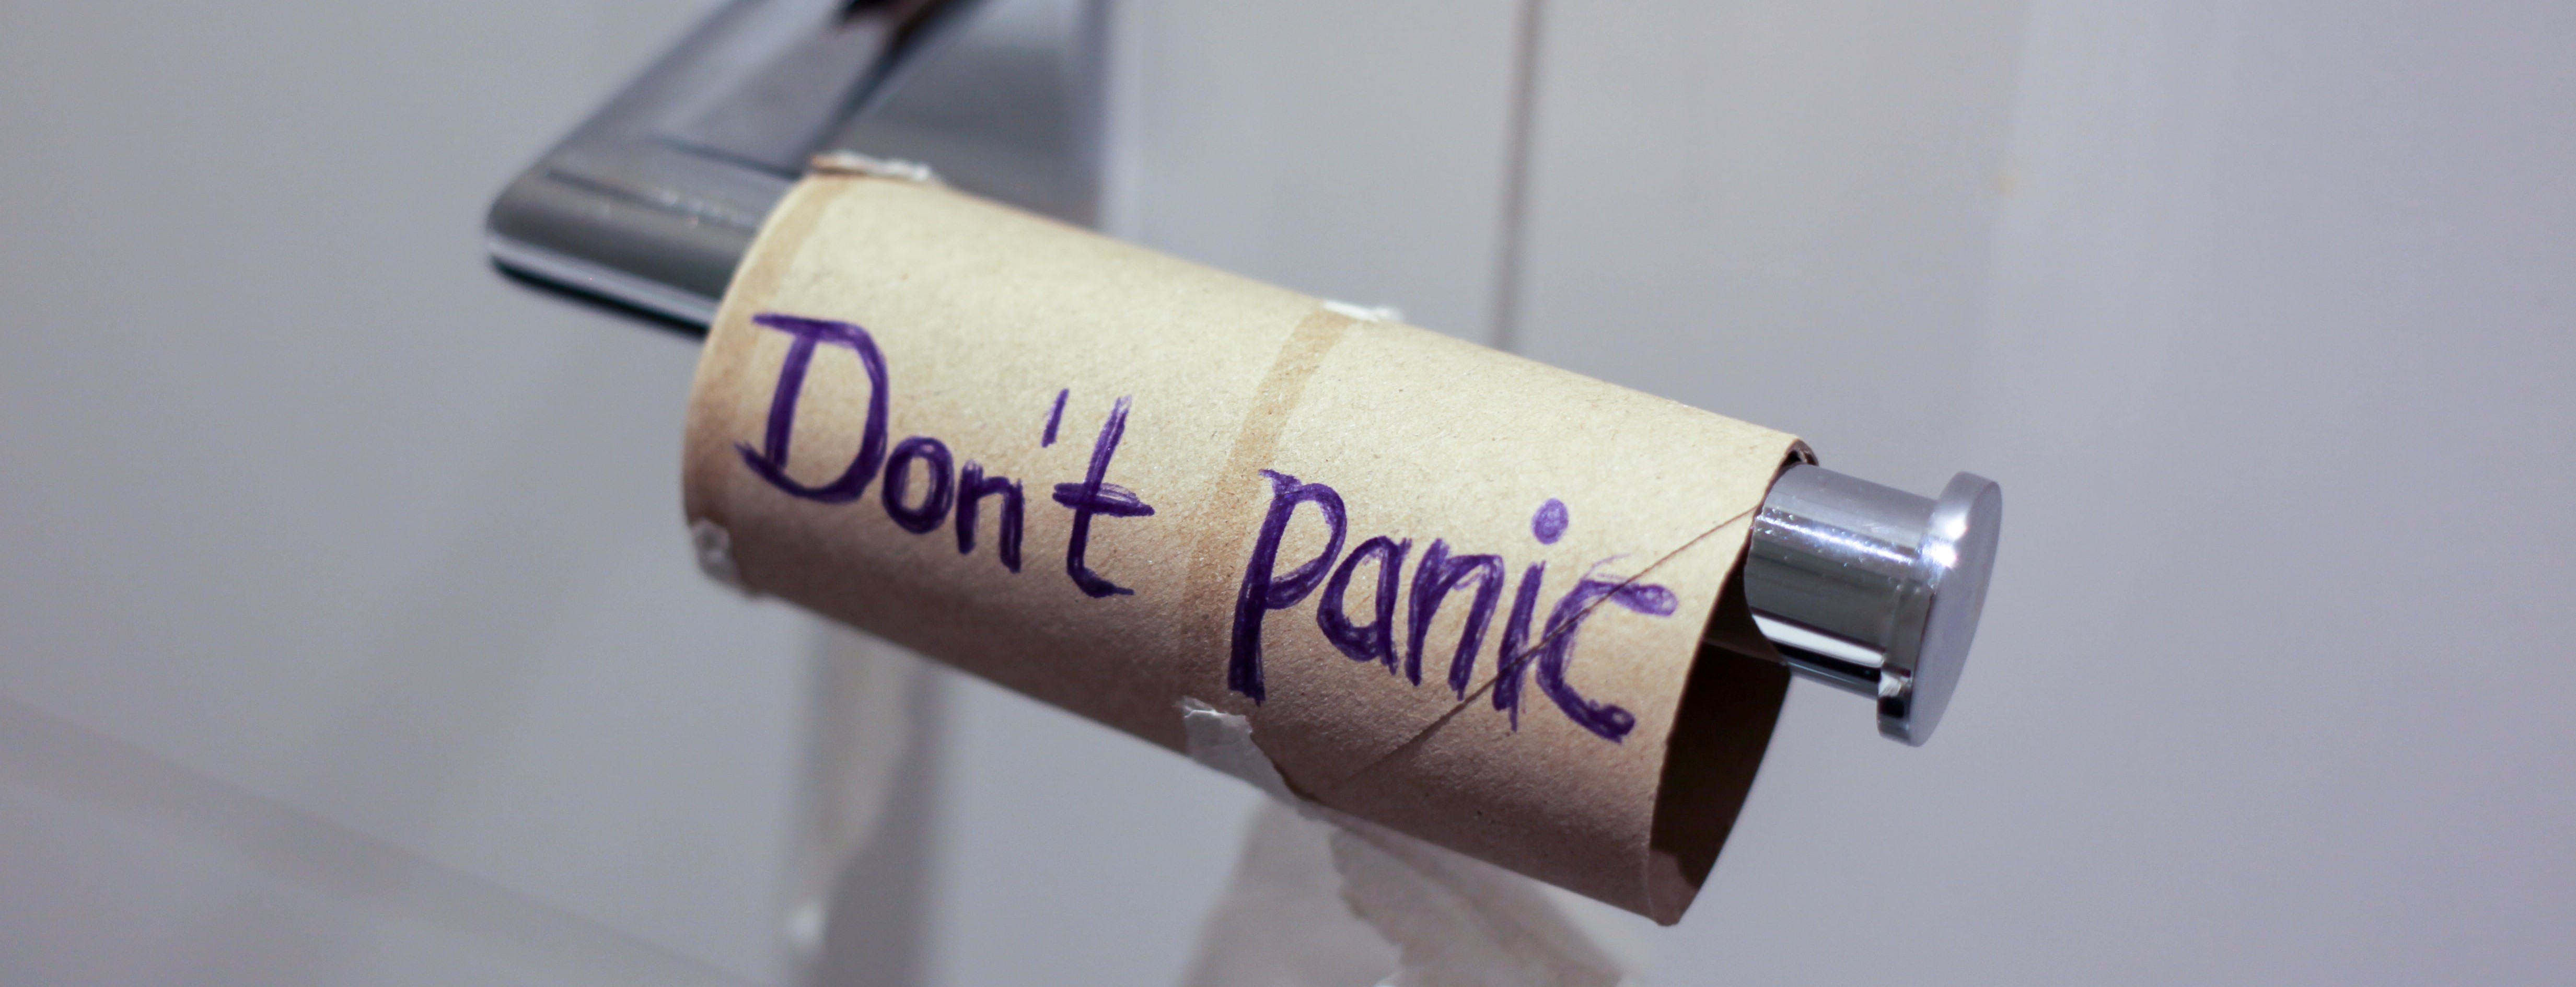 Don't panic